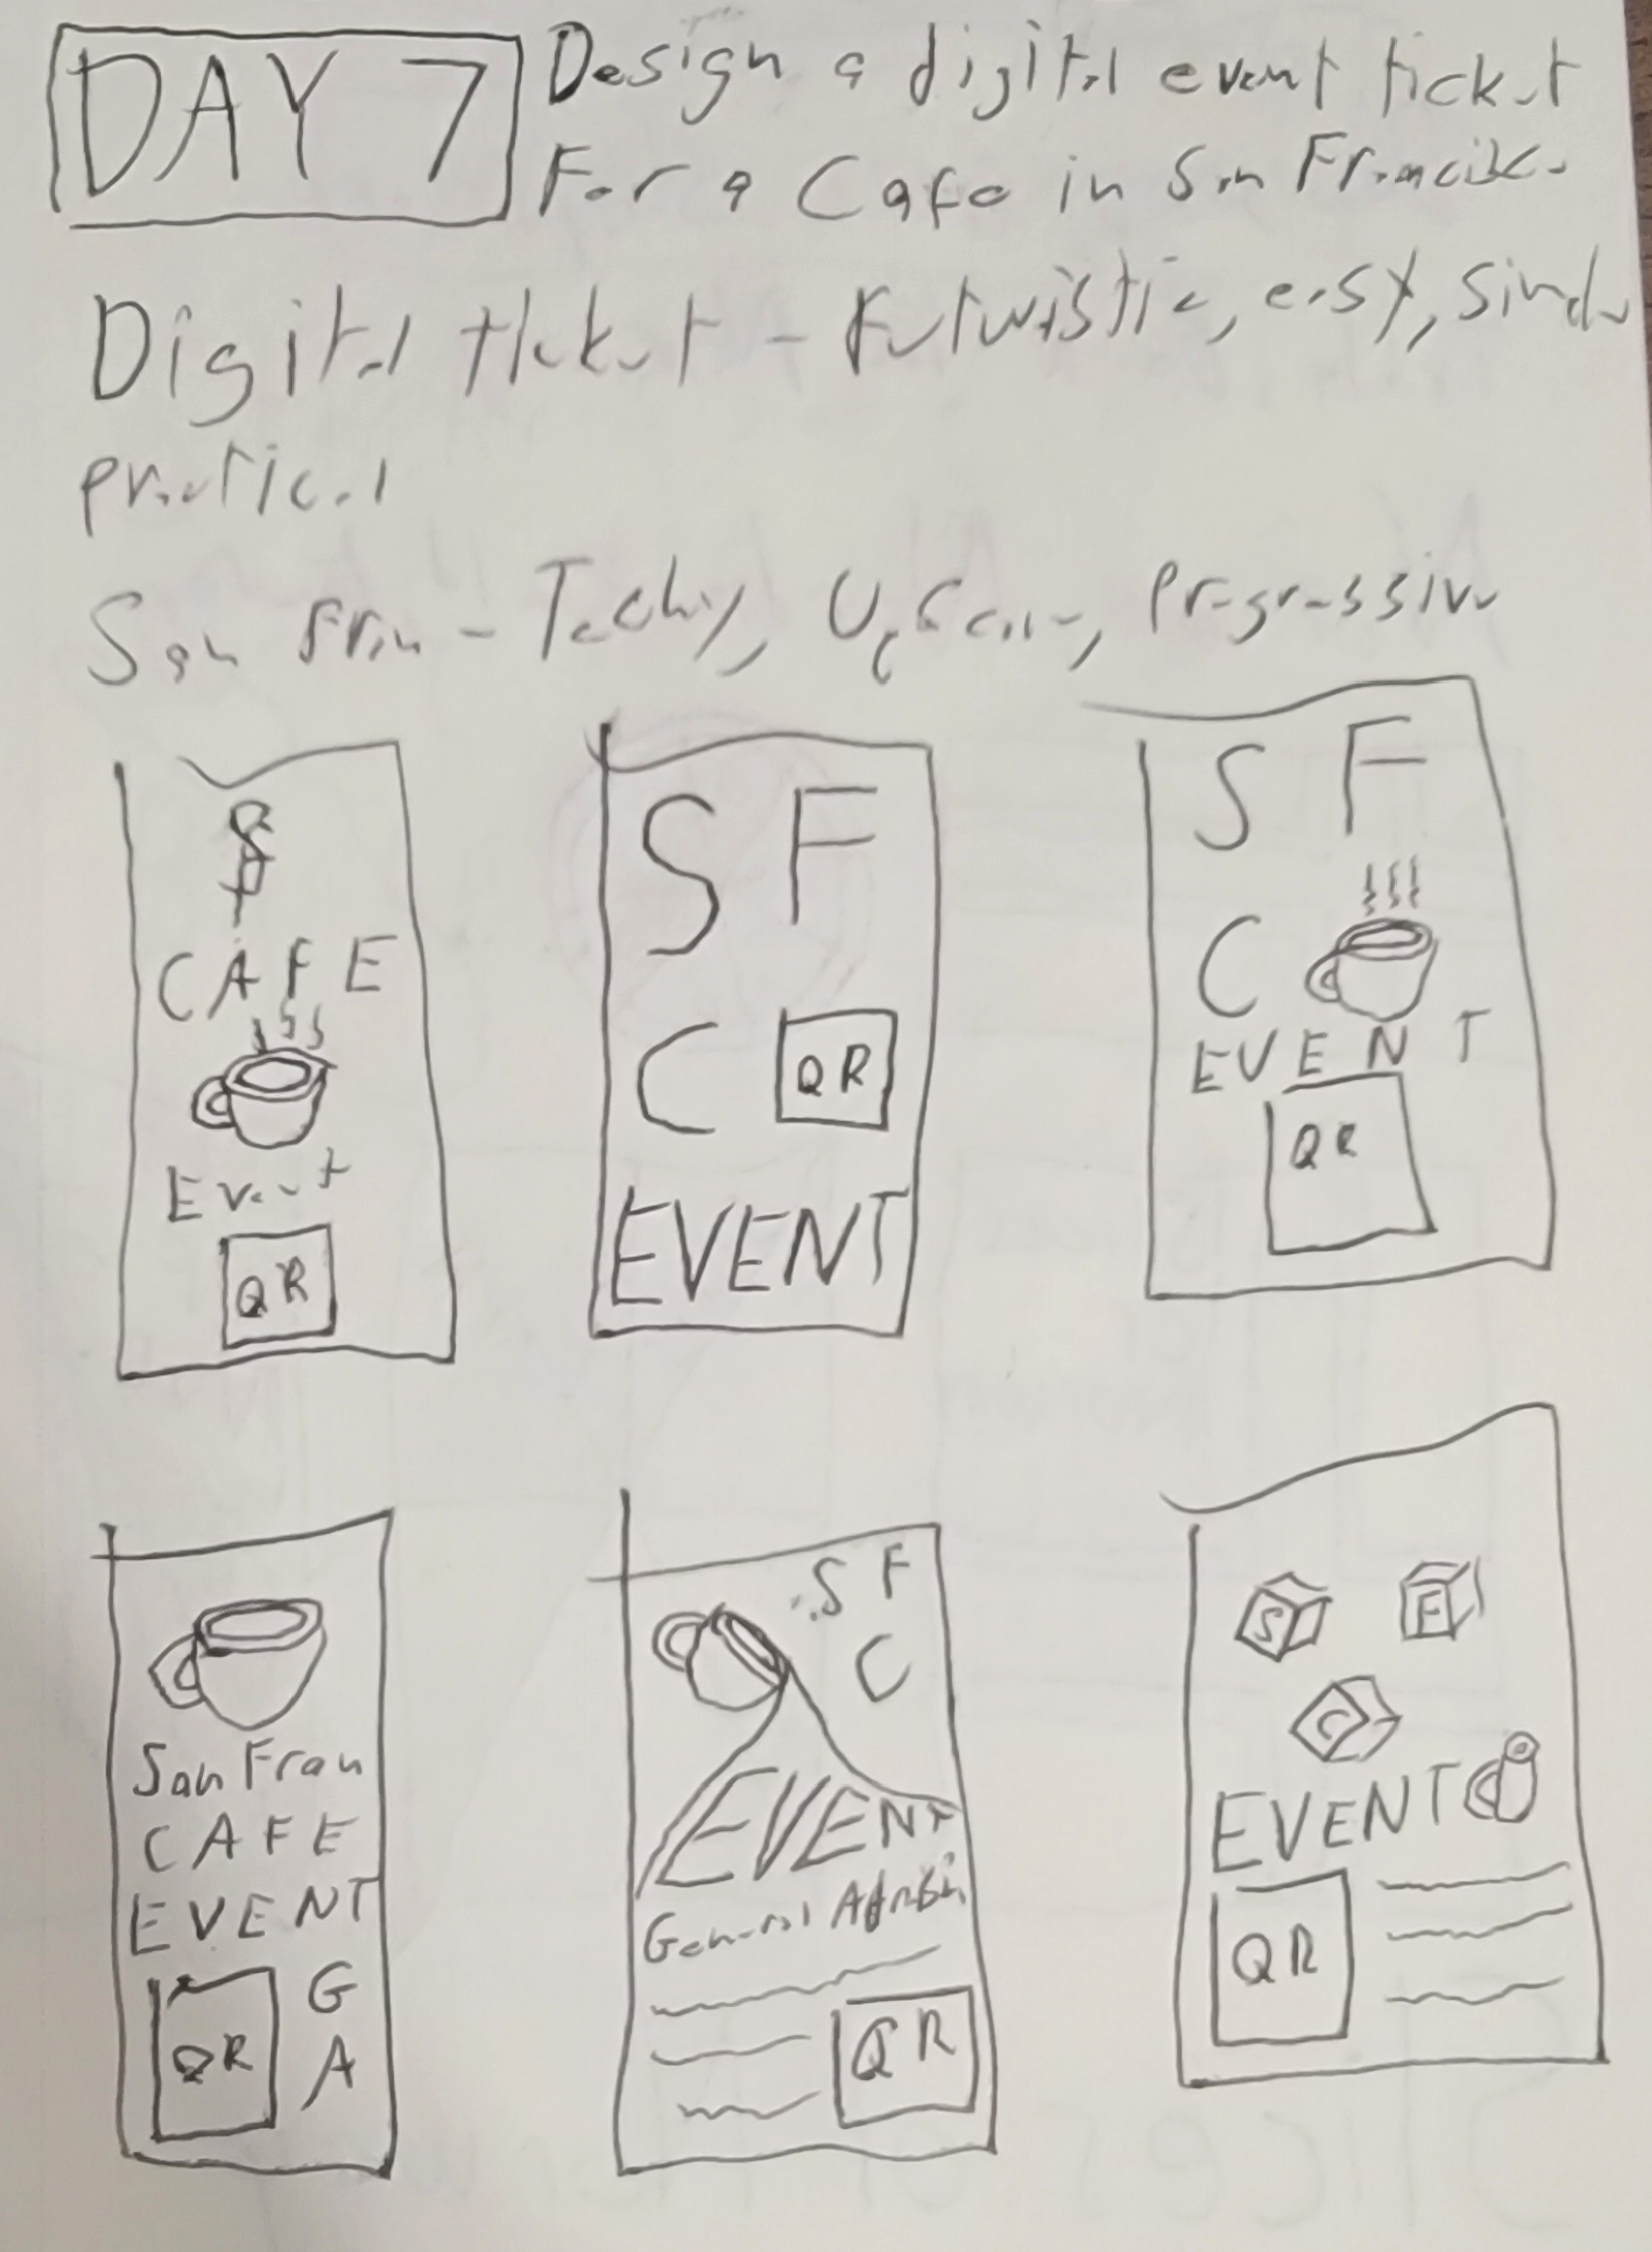 DAY 7
Design a digital event ticket
For a Cafe in San Francisco
Digital ticket - Futuristic, easy, simple
practical
San Fran - Techy, Upscale, Progressive
SF
CAFE
Event
QR
S F
C QR
EVENT
S F
C
EVENT
QR
San Fran
CAFE
EVENT
QR
G
A
S F
C
EVENT
General Admission
QR
S F
C
EVENT
QR